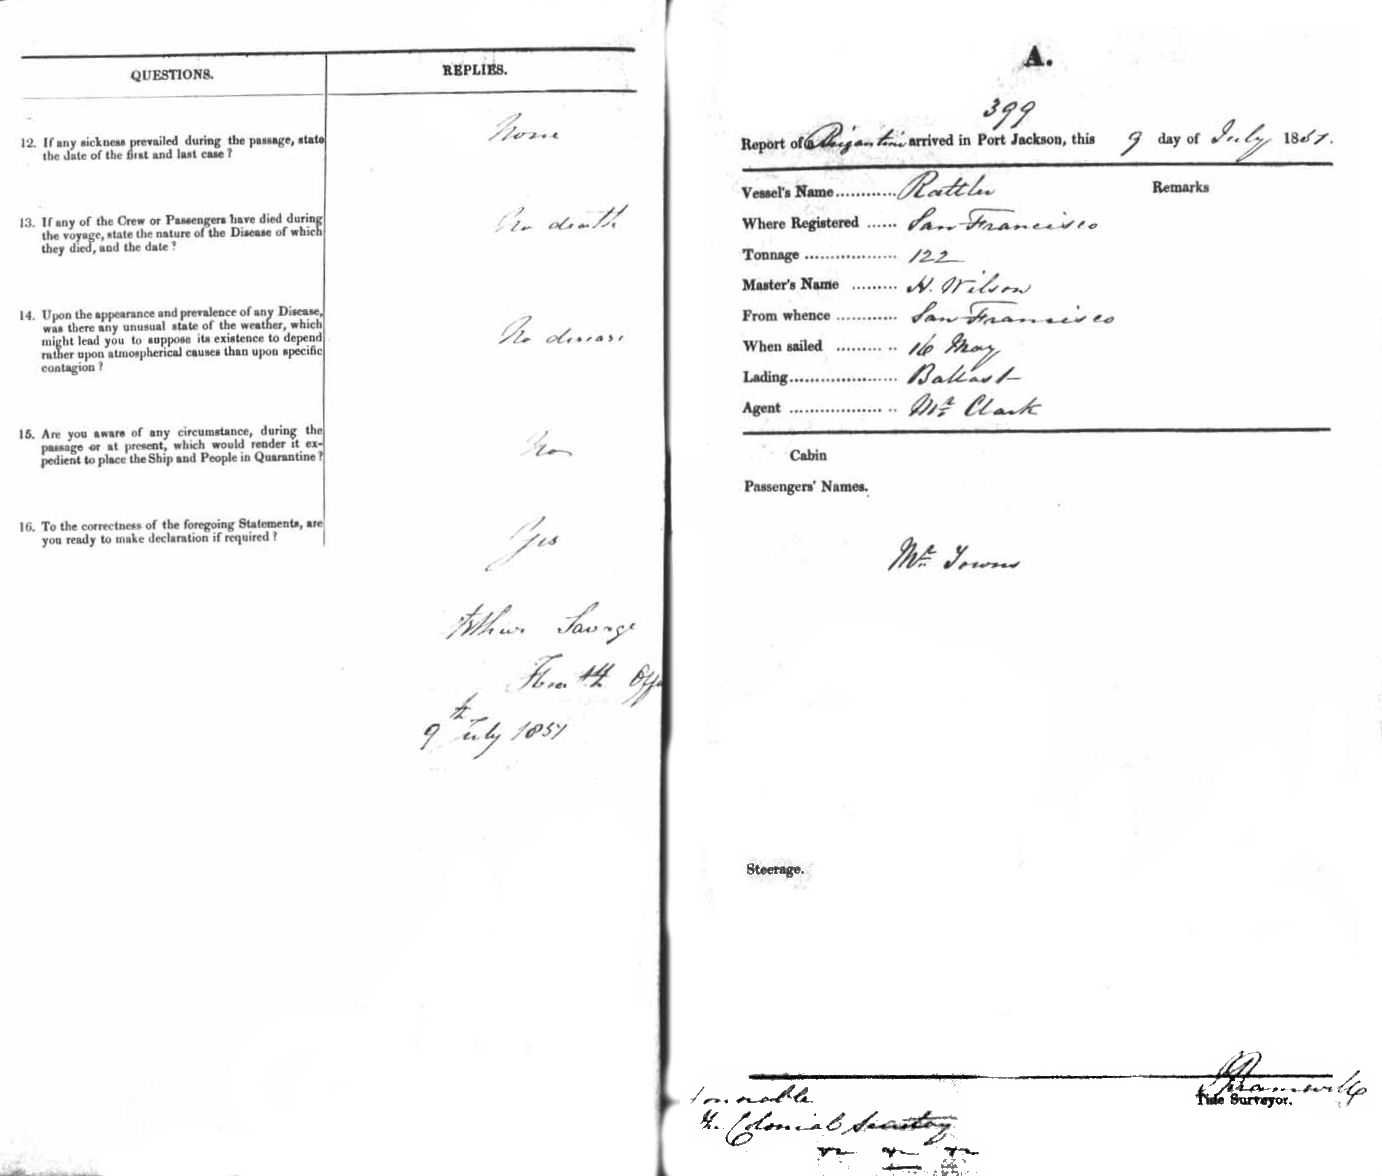 QUESTIONS.
REPLIES.
12. If any sickness prevailed during the passage, state
the date of the first and last case ?
None
13. If any of the Crew or Passengers have died during
the voyage, state the nature of the Disease of which
they died, and the date ?
No death
14. Upon the appearance and prevalence of any Disease,
was there any unusual state of the weather, which
might lead you to suppose its existence to depend
rather upon atmospherical causes than upon specific
contagion ?
No disease
15. Are you aware of any circumstance, during the
passage or at present, which would render it ex-
pedient to place the Ship and People in Quarantine ?
No
16. To the correctness of the foregoing Statements, are
you ready to make declaration if required ?
Yes
Arthur Savage
Health Offi
9th July 1851
A.
399
Report of a Brigantine arrived in Port Jackson, this 9 day of July 1851.
Vessel's Name............ Rattler
Remarks
Where Registered ...... San Francisco
Tonnage .................. 122
Master's Name ......... H. Wilson
From whence ............ San Francisco
When sailed ......... .. 16 May
Lading..................... Ballast
Agent .................. .. Mr Clark
Cabin
Passengers' Names.
Mr Towns
Steerage.
Bramwell
Tide Surveyor.
Honorable
The Colonial Secretary